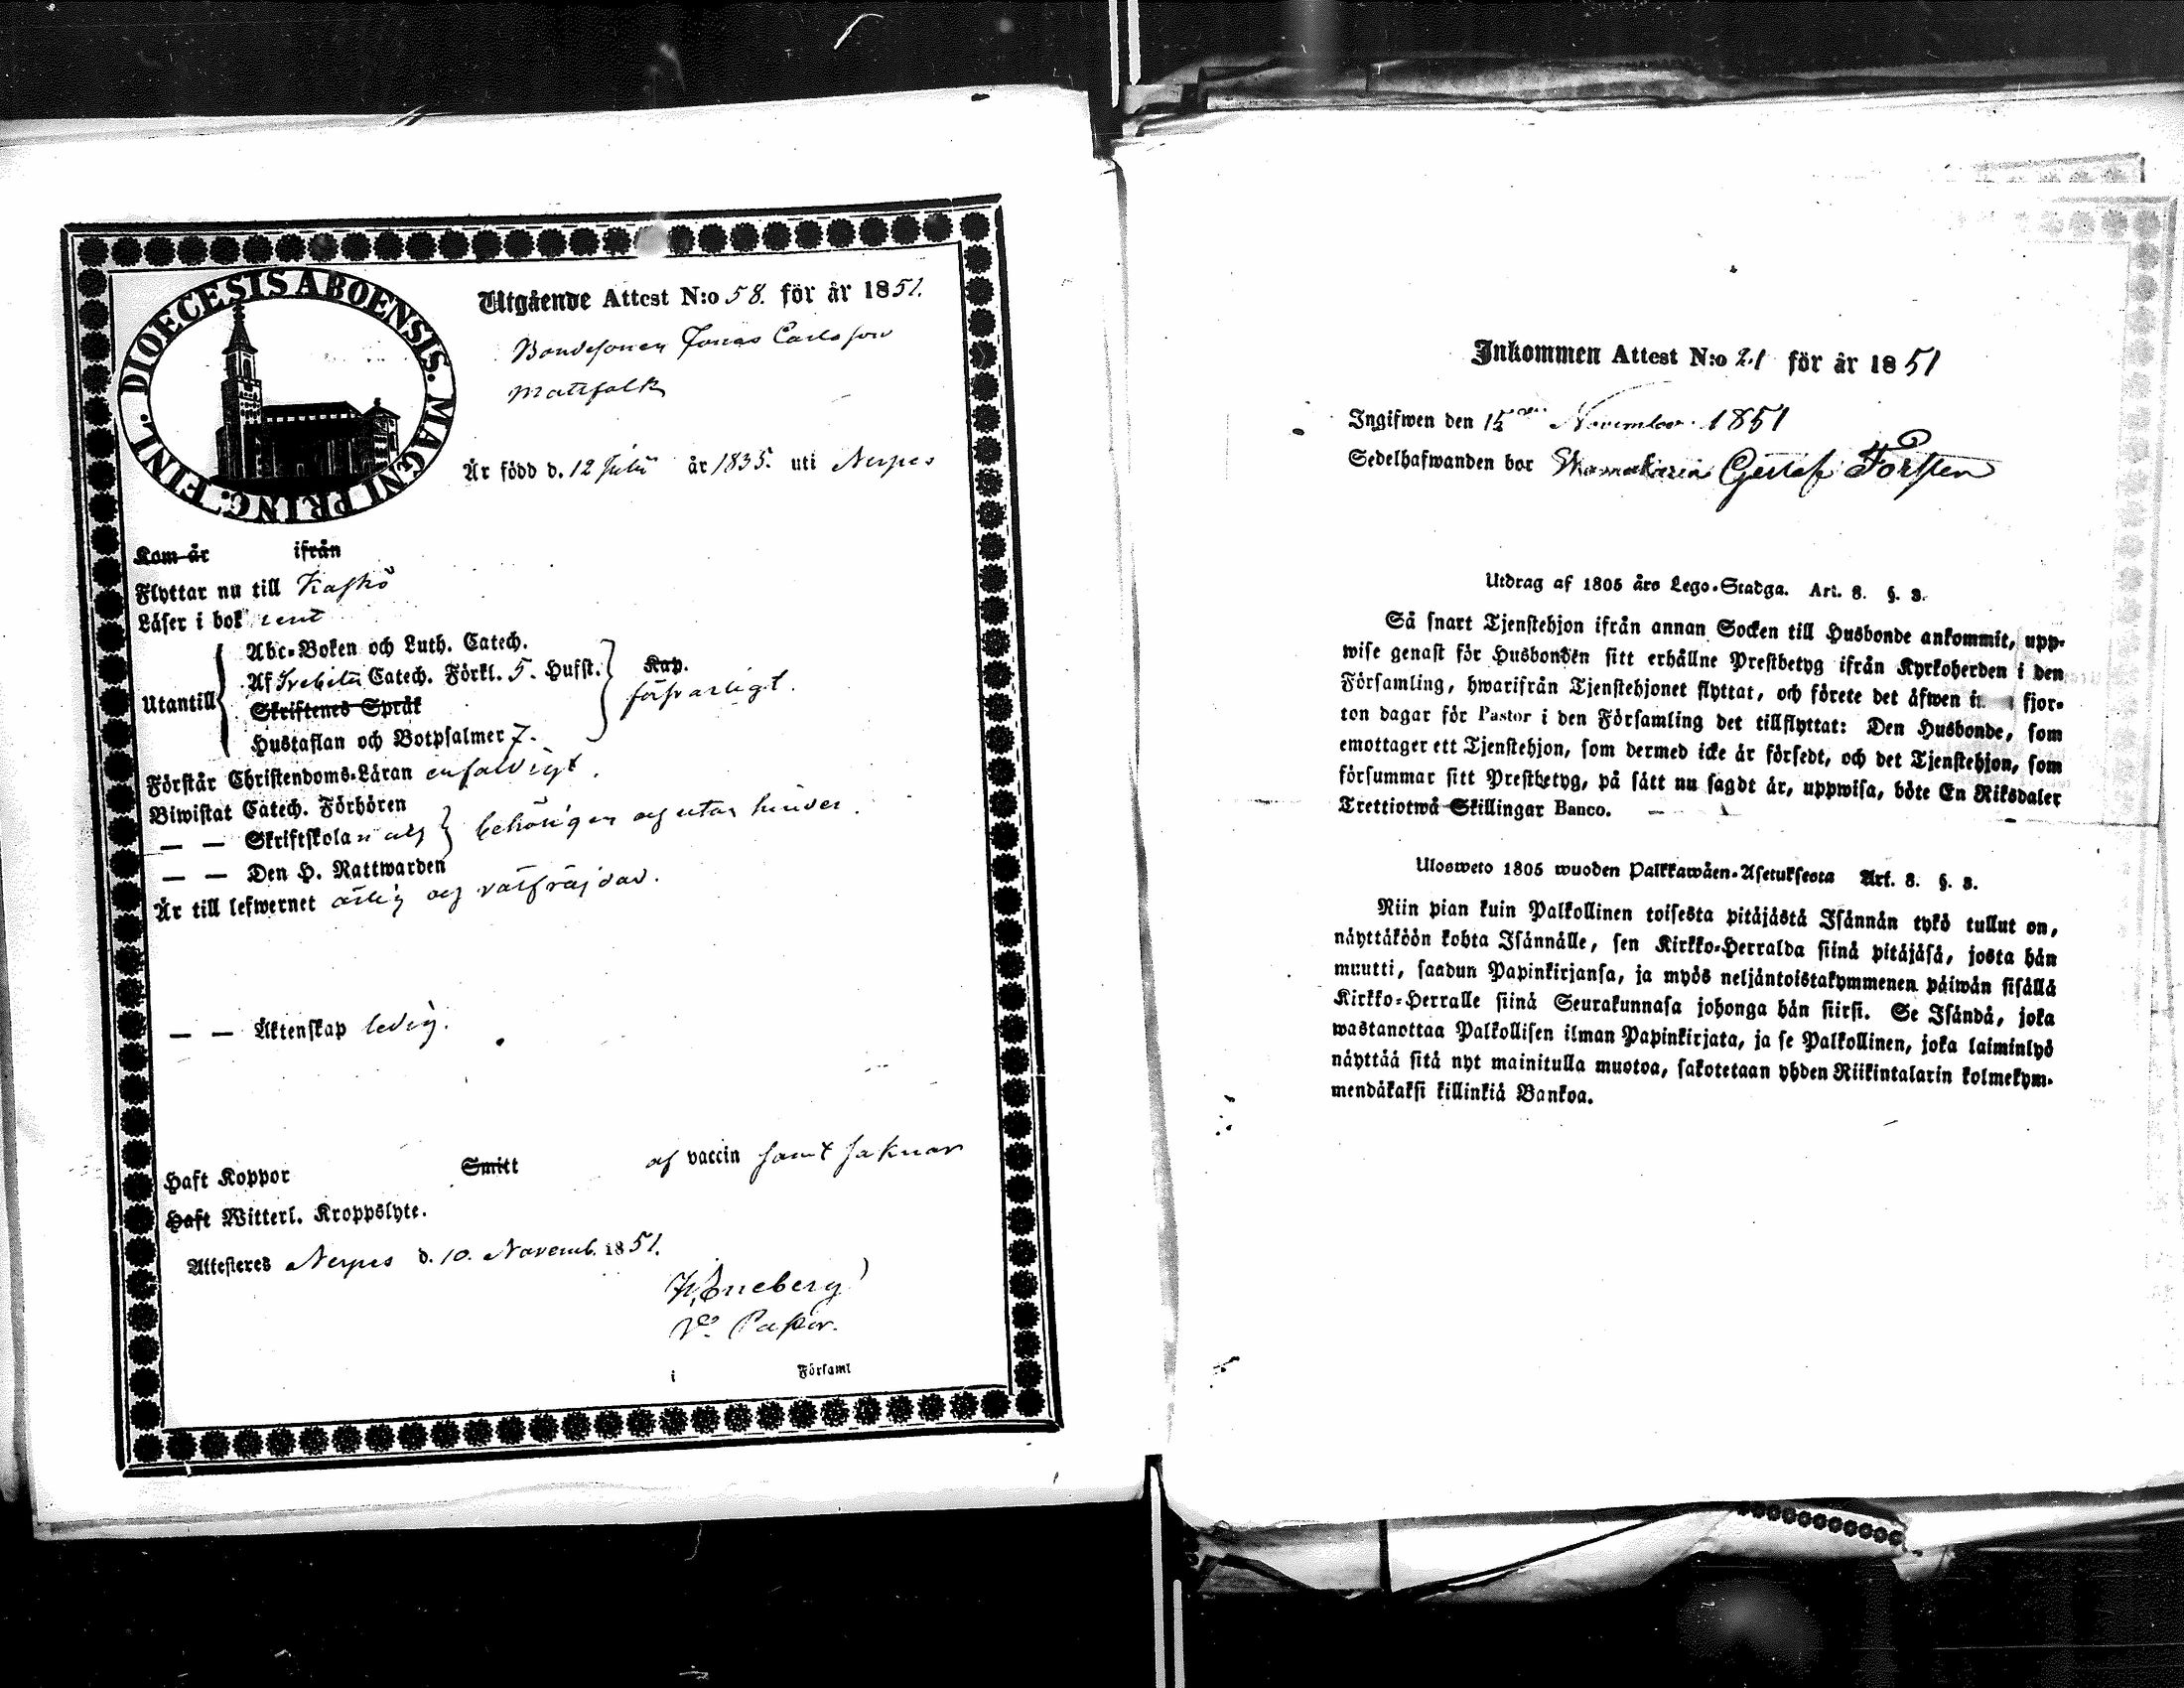 DIOECESIS ABOENSIS. MAGNI PRINC. FINL.
Utgående Attest N:o 58. för år 1851.
Bondesonen Jonas Carlsson
Mattfolk
Är född d. 12 Julii år 1835. uti Nerpes
Kom år ifrån
Flyttar nu till Kaskö
Läser i bok rent
Utantill
Abc-Boken och Luth. Catech.
Af Svebilii Catech. Förkl. 5. Hufst.
Skriftenes Språk
Hustaflan och Botpsalmer 7.
Kap.
försvarligt.
Förstår Christendoms-Läran enfaldigt.
Biwistat Catech. Förhören
— — Skriftskolan och
— — Den H. Nattwarden
behörigen och utan hinder.
Är till lefwernet ärlig och välfräjdad.
— — Äktenskap ledig.
Haft Koppor Smitt af vaccin samt saknar
Haft Witterl. Kroppslyte.
Attesteres Nerpes d. 10. Novemb. 1851.
Eneberg
Vc. Pastor.
i Församl
Inkommen Attest N:o 21 för år 1851
Ingifwen den 15de November 1851
Sedelhafwanden bor Gustaf Forsten
Utdrag af 1805 års Lego-Stadga. Art. 8. §. 3.
Så snart Tjenstehjon ifrån annan Socken till Husbonde ankommit, upp-
wise genast för Husbonden sitt erhållne Prestbetyg ifrån Kyrkoherden i den
Församling, hwarifrån Tjenstehjonet flyttat, och förete det äfwen fjor-
ton dagar för Pastor i den Församling det tillflyttat: Den Husbonde, som
emottager ett Tjenstehjon, som dermed icke är försedt, och det Tjenstehjon, som
försummar sitt Prestbetyg, på sätt nu sagdt är, uppwisa, böte En Riksdaler
Trettiotwå Skillingar Banco.
Ulosweto 1805 wuoden Palkkawäen-Asetuksesta Art. 8. §. 3.
Niin pian kuin Palkollinen toisesta pitäjästä Isännän tykö tullut on,
näyttäköön kohta Isännälle, sen Kirkko-Herralda siinä pitäjäsä, josta hän
muutti, saadun Papinkirjansa, ja myös neljäntoistakymmenen päiwän sisällä
Kirkko-Herralle siinä Seurakunnasa johonga hän siirsi. Se Isändä, joka
wastanottaa Palkollisen ilman Papinkirjata, ja se Palkollinen, joka laiminlyö
näyttää sitä nyt mainitulla muotoa, sakotetaan yhden Riikintalarin kolmekym-
mendäkaksi killinkiä Bankoa.